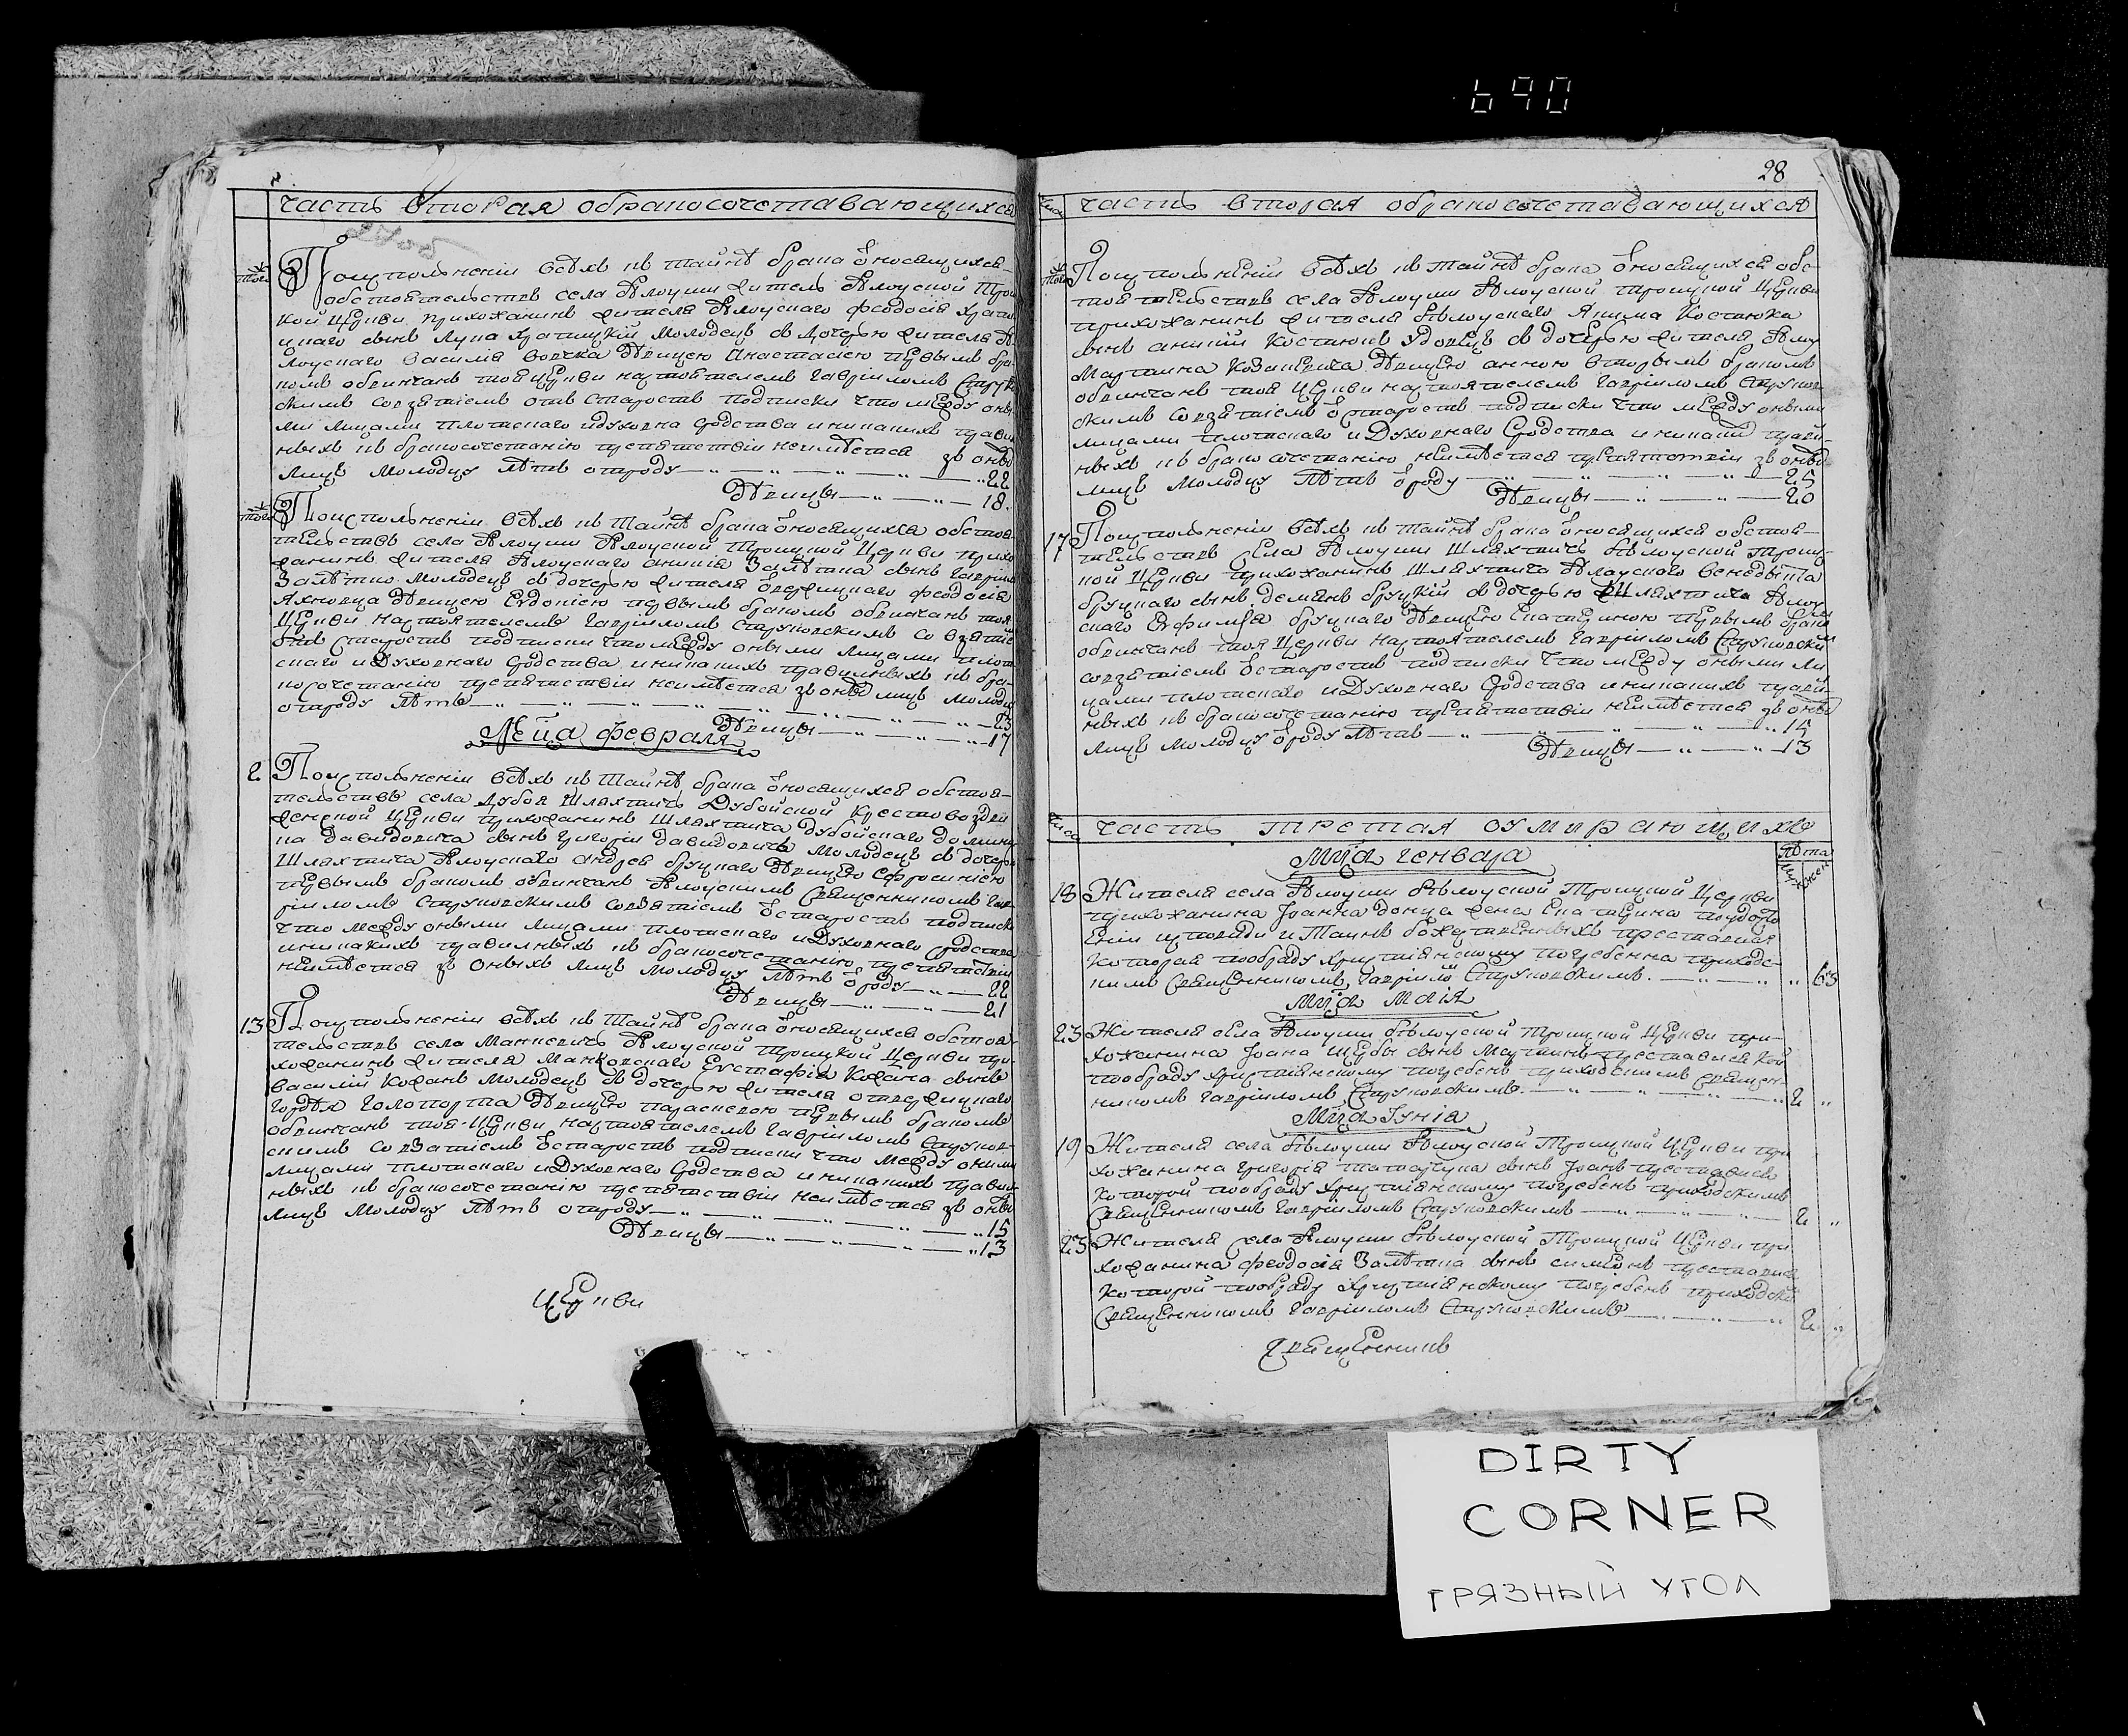 690
28
Часть вторая обракосочетавающихся
По исполненіи всѣхъ къ тайнѣ брака относящихся
обстоятельствъ села Ѣлоуши житель Ѣлоуской Трои
кой Церкви прихожанинъ жителя Ѣлоускаго Феодосія
сынъ Лука молодецъ съ дочерью жителя Ѣ
лоускаго Василія девицею Анастасіею первымъ бра
комъ обвинчанъ тоя Церкви настоятелемъ Гавріиломъ
скимъ совзятіемъ отъ старостъ подписки что между оны
ми лицами плотскаго идуховна сродства иникакихъ прави
ныхъ къ бракосочетанію препятствіи неимѣется зъ оных
лицъ молодцу лѣтъ отроду 22
Девицы 18
По исполненіи всѣхъ къ тайнѣ брака относящихся обстоя
тельствъ села Ѣлоуши Ѣлоуской Троицкой Церкви прихо
жанинъ жителя Ѣлоускаго сынъ
молодецъ съ дочерью жителя Феодосія
девицею Евдокіею первымъ бракомъ обвинчанъ тоя
Церкви настоятелемъ Гавріиломъ Струковскимъ со взятіе
отъ старостъ подписки что между оными лицами плот
скаго идуховнаго сродства иникакихъ правилныхъ къ бра
косочетанію препятствіи неимѣется зъ оных лицъ молодц
отроду лѣтъ 23
Девицы 17
Мсца Февраля
2 По исполненіи всѣхъ къ тайнѣ брака относящихся обстоя
тельствъ села Дубоя Шляхтичъ Дубойской Крестовоздви
женской Церкви прихожанинъ Шляхтича Дубойскаго Домини
ка Давидовича сынъ Григорій Давидовичъ молодецъ съ дочерю
Шляхтича Ѣлоускаго Андрея Бруцкаго девицею Ефросиніею
первымъ бракомъ обвинчанъ Ѣлоускимъ Священникомъ Гав
ріиломъ Струковскимъ совзятіемъ отстаростъ подписки
что между оными лицами плотскаго идуховнаго сродства
иникакихъ правилныхъ къ бракосочетанію препятствіи
неимѣется зъ оныхъ лицъ молодцу лѣтъ отроду 22
Девицы 21
13 По исполненіи всѣхъ къ тайнѣ брака относящихся обстоя
тельствъ села Манкевичъ Ѣлоуской Троицкой Церкви при
хожанинъ жителя Манковскаго Евстафія сынъ
Василій молодецъ съ дочерью жителя
Гордѣя девицею Параскевою первымъ бракомъ
обвинчанъ тоя Церкви настоятелемъ Гавріиломъ Струков
скимъ совзятіемъ отстаростъ подписки что между оними
лицами плотскаго идуховнаго сродства иникакихъ правил
ныхъ къ бракосочетанію препятствіи неимѣется зъ оных
лицъ молодцу лѣтъ отроду 15
Девицы 13
Церкви
Часть вторая обракосочетавающихся
По исполненіи всѣхъ къ тайнѣ брака относящихся обс
тоятельствъ села Ѣлоуши Ѣлоуской Троицкой Церкви
прихожанинъ жителя Ѣлоускаго Якима Костюка
сынъ Костюкъ удовецъ съ дочерью жителя Ѣлоу
Мартина девицею Анною вторымъ бракомъ
обвинчанъ тоя Церкви настоятелемъ Гавріиломъ Струков
скимъ совзятіемъ отстаростъ подписки что между оными
лицами плотскаго идуховнаго сродства иникаких прави
ныхъ къ бракосочетанію неимѣется препятствіи зъ оных
лицъ молодцу лѣтъ отроду 25
Девицы 20
17 По исполненіи всѣхъ къ тайнѣ брака относящихся обстоя
тельствъ села Ѣлоуши Шляхтичъ Ѣлоуской Троиц
кой Церкви прихожанинъ Шляхтича Ѣлоускаго Бенедыкта
Бруцкаго сынъ Демянъ Бруцкій съ дочерью Шляхтича Ѣлоу
скаго Бруцкаго девицею Екатериною первымъ браком
обвинчанъ тоя Церкви настоятелемъ Гавріиломъ Струковски
совзятіемъ отстаростъ подписки что между оными ли
цами плотскаго идуховнаго сродства иникакихъ прави
ныхъ къ бракосочетанію препятствіи неимѣется зъ оных
лицъ молодцу отроду лѣтъ 15
Девицы 13
Часть третая оумирающихъ
Мсца Генваря
Лѣта
18 Жителя села Ѣлоуши Ѣлоуской Троицкой Церкви
прихожанина Іоанна Донца жена Екатерина по
еніи исповѣди и таинъ божественныхъ преставися
которая пообряду христіянскому погребенна приходс
кимъ Священникомъ Гавріилом Струковскимъ 65
Мсца Маія
23 Жителя села Ѣлоуши Ѣлоуской Троицкой Церкви при
хожанина Іоана сынъ Мартинъ преставися кой
пообряду христіянскому погребенъ приходскимъ Священ
никомъ Гавріиломъ Струковскимъ 2
Мсца Іунія
19 Жителя села Ѣлоуши Ѣлоуской Троицкой Церкви при
хожанина Григорія сынъ Іоанъ преставися
которой пообряду христіянскому погребенъ приходскимъ
Священникомъ Гавріиломъ Струковскимъ 2
23 Жителя села Ѣлоуши Ѣлоуской Троицкой Церкви при
хожанина Феодосія сынъ Симеонъ преставися
которой пообряду христіянскому погребенъ приходски
Священникомъ Гавріиломъ Струковскимъ 2
Священникъ
DIRTY
CORNER
ГРЯЗНЫЙ УГОЛ